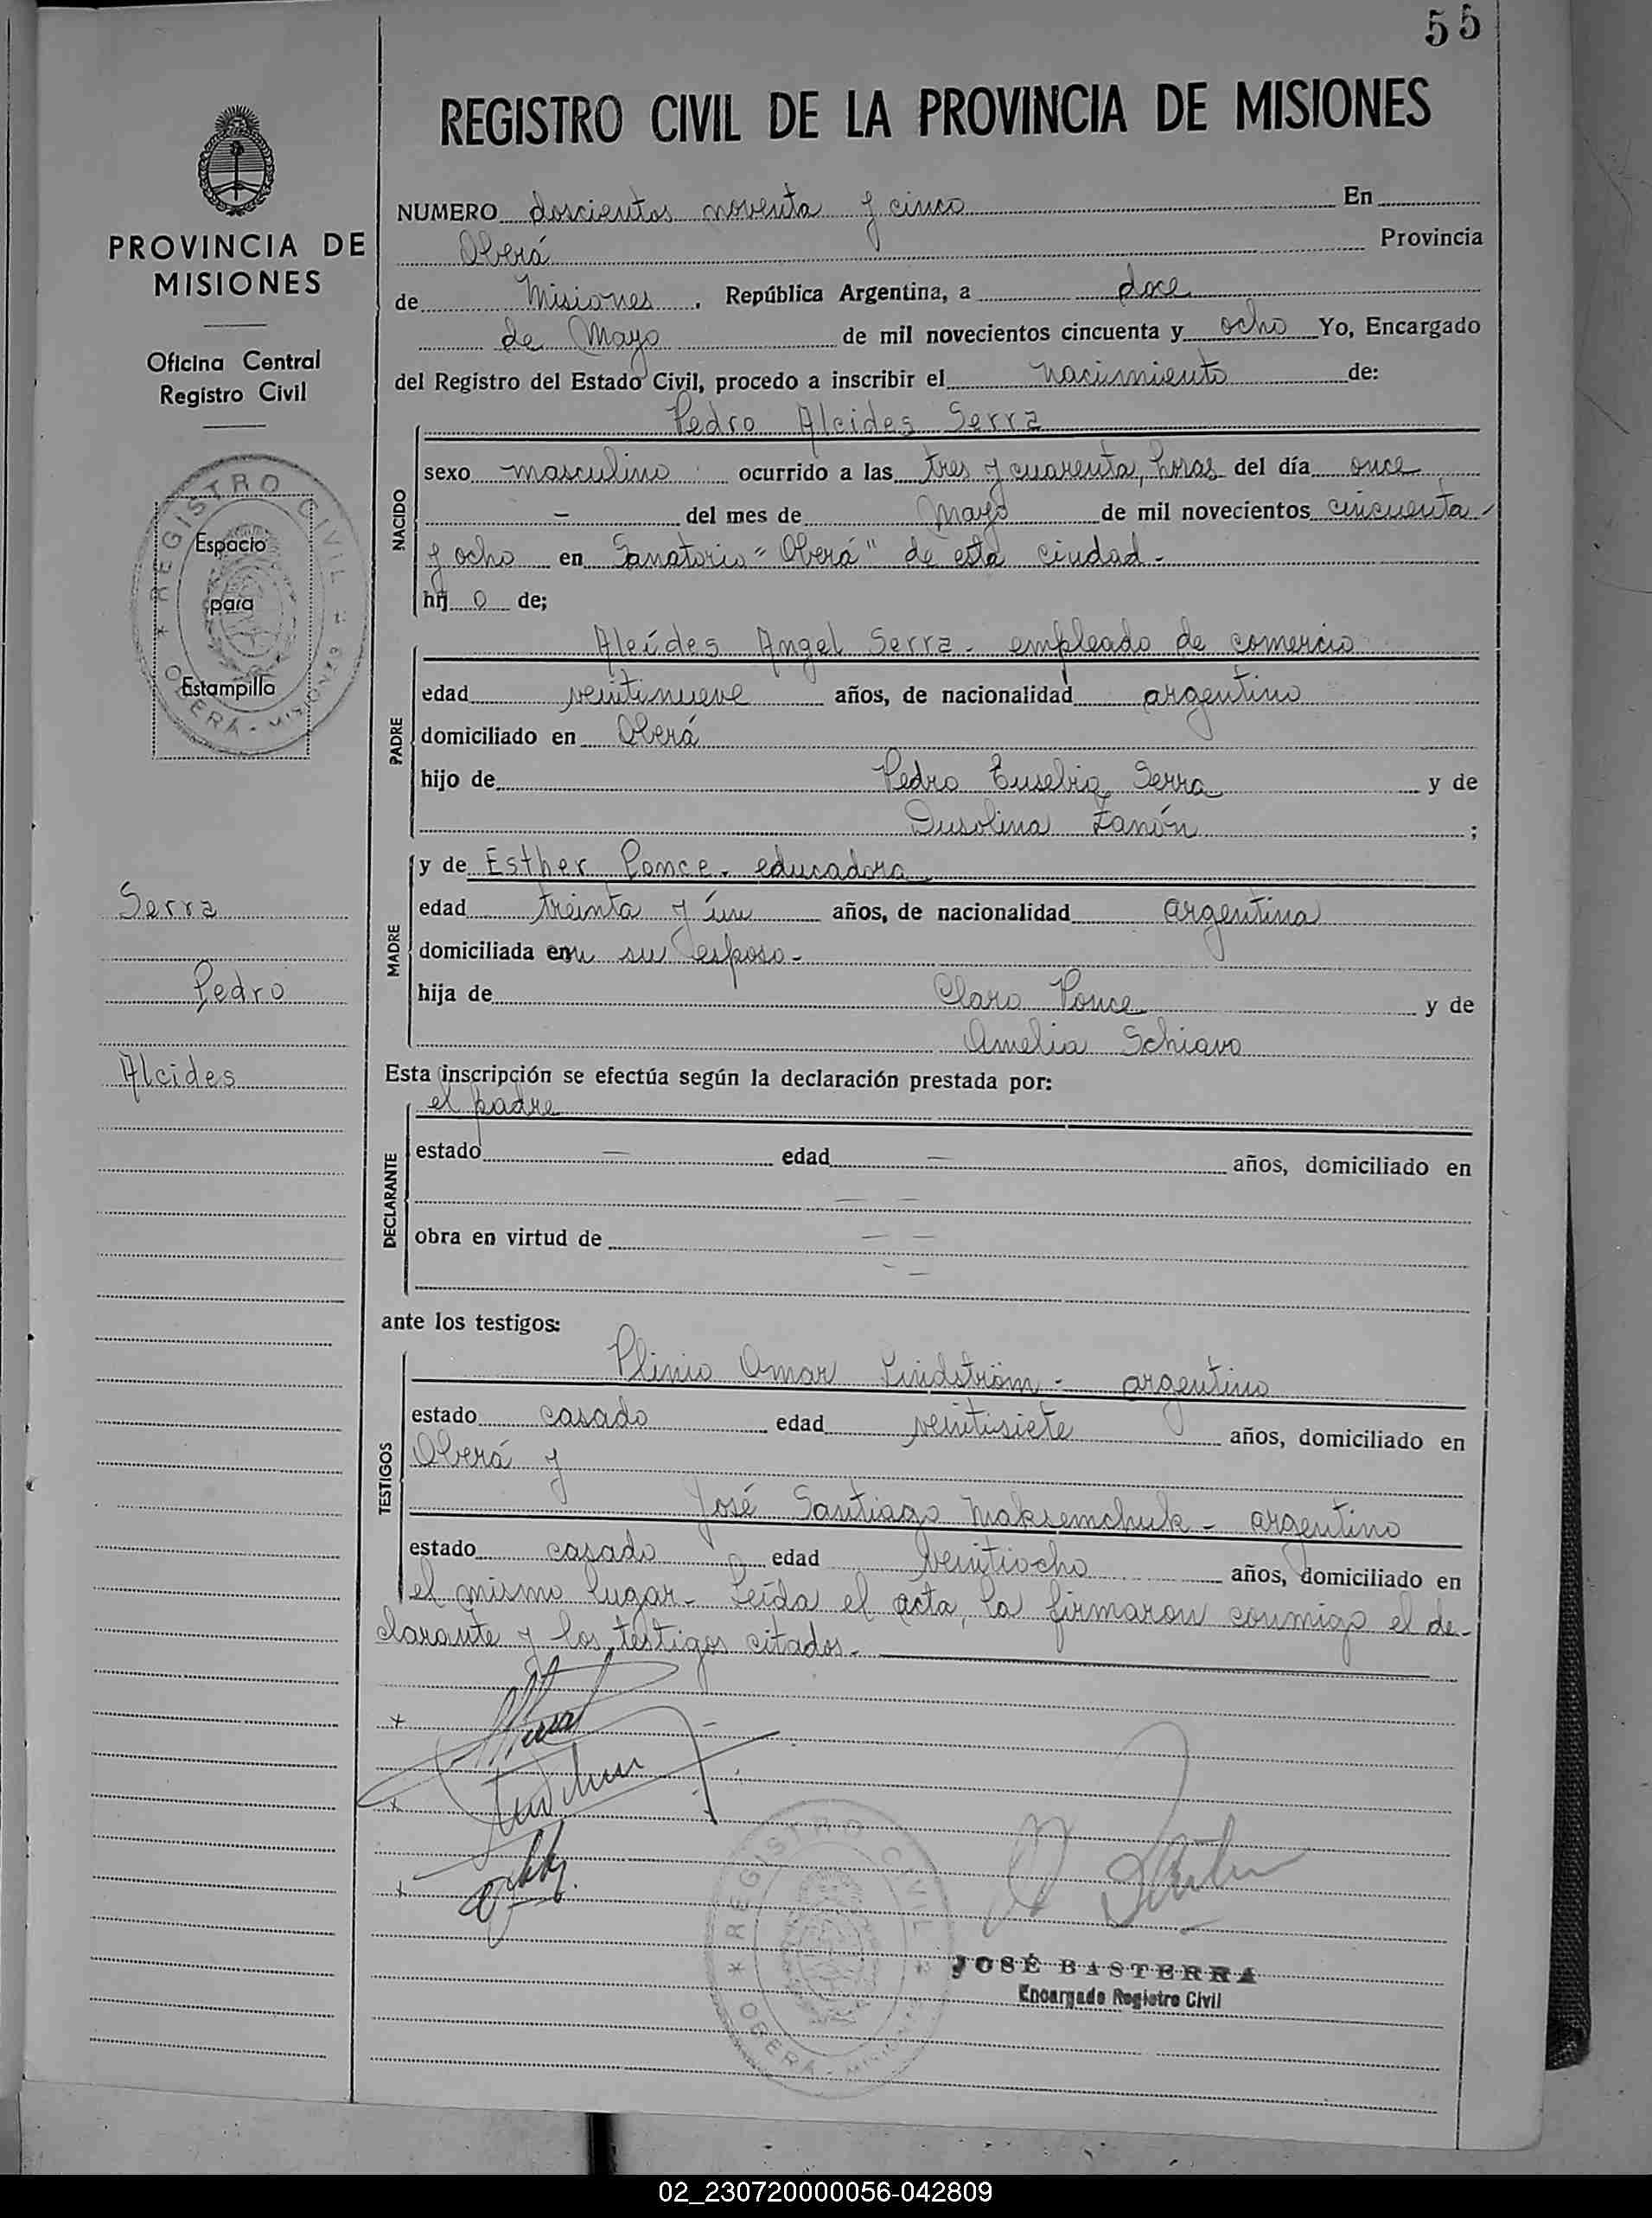 55
REGISTRO CIVIL DE LA PROVINCIA DE MISIONES
PROVINCIA DE
MISIONES
Oficina Central
Registro Civil
REGISTRO CIVIL
OBERÁ - MISIONES
Espacio
para
Estampilla
Serra
Pedro
Alcides
NUMERO doscientos noventa y cinco En
Oberá Provincia
de Misiones, República Argentina, a doce
de Mayo de mil novecientos cincuenta y ocho Yo, Encargado
del Registro del Estado Civil, procedo a inscribir el nacimiento de:
NACIDO
Pedro Alcides Serra
sexo masculino ocurrido a las tres y cuarenta, horas del día once
- del mes de Mayo de mil novecientos cincuenta
y ocho en Sanatorio "Oberá" de esta ciudad.-
hij o de;
PADRE
Alcídes Angel Serra - empleado de comercio
edad veintinueve años, de nacionalidad argentino
domiciliado en Oberá
hijo de Pedro Eusebio Serra y de
Dusolina Zanón ;
MADRE
y de Esther Ponce - educadora
edad treinta y ún años, de nacionalidad argentina
domiciliada en su esposo.-
hija de Claro Ponce y de
Amelia Schiavo
Esta inscripción se efectúa según la declaración prestada por:
DECLARANTE
el padre
estado — edad — años, domiciliado en
— —
obra en virtud de — —
- —
ante los testigos:
TESTIGOS
Plinio Omar Lindström - argentino
estado casado edad veintisiete años, domiciliado en
Oberá y
José Santiago Maksemchuk - argentino
estado casado edad veintiocho años, domiciliado en
el mismo lugar.- Leída el acta, la firmaron conmigo el de-
clarante y los testigos citados.-
REGISTRO CIVIL
OBERÁ - MISIONES
JOSÉ BASTERRA
Encargado Registro Civil
02_230720000056-042809